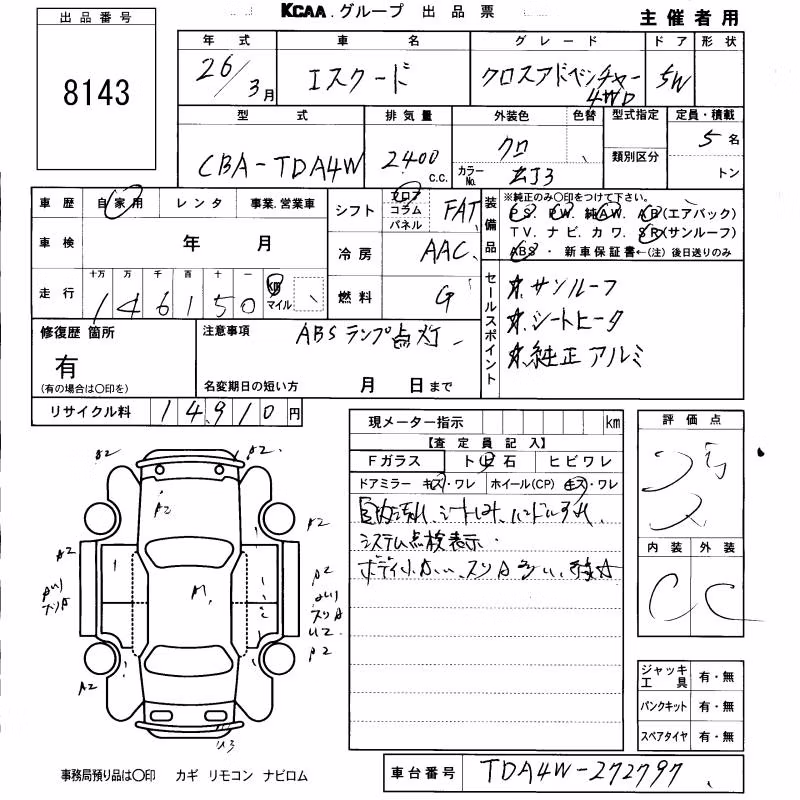 KCAA.グループ 出品票
主催者用
出品番号
8143
年式 車名 グレード ドア 形状
26/3月 エスクード クロスアドベンチャー 4WD 5W
型式 排気量 外装色 色替 型式指定 定員・積載
CBA-TDA4W 2400c.c. クロ 5名
カラーNo. ZJ3 類別区分 トン
車歴 自家用 レンタ 事業.営業車
シフト フロア コラム パネル FAT
装備品 ※純正のみ○印をつけて下さい。
PS. PW. 純AW. AB(エアバック)
TV. ナビ. カワ. SR(サンルーフ)
ABS・新車保証書←(注)後日送りのみ
車検 年 月
冷房 AAC
走行 十万 万 千 百 十 一
146150 km マイル
燃料 G
セールスポイント
サンルーフ
シートヒータ
純正アルミ
修復歴 箇所
有
(有の場合は○印を)
注意事項 ABSランプ点灯
名変期日の短い方 月 日まで
リサイクル料 14910円
現メーター指示 km
【査定員記入】
Fガラス トビ石 ヒビワレ
ドアミラー キズ・ワレ ホイール(CP) キズ・ワレ
システム点検表示.
評価点
内装 外装
C C
A2
A2
A2
A2
A2
A2
A1
A2
スリA
U2
A2
A2
U3
ジャッキ工具 有・無
パンクキット 有・無
スペアタイヤ 有・無
事務局預り品は○印 カギ リモコン ナビロム
車台番号 TDA4W-272797